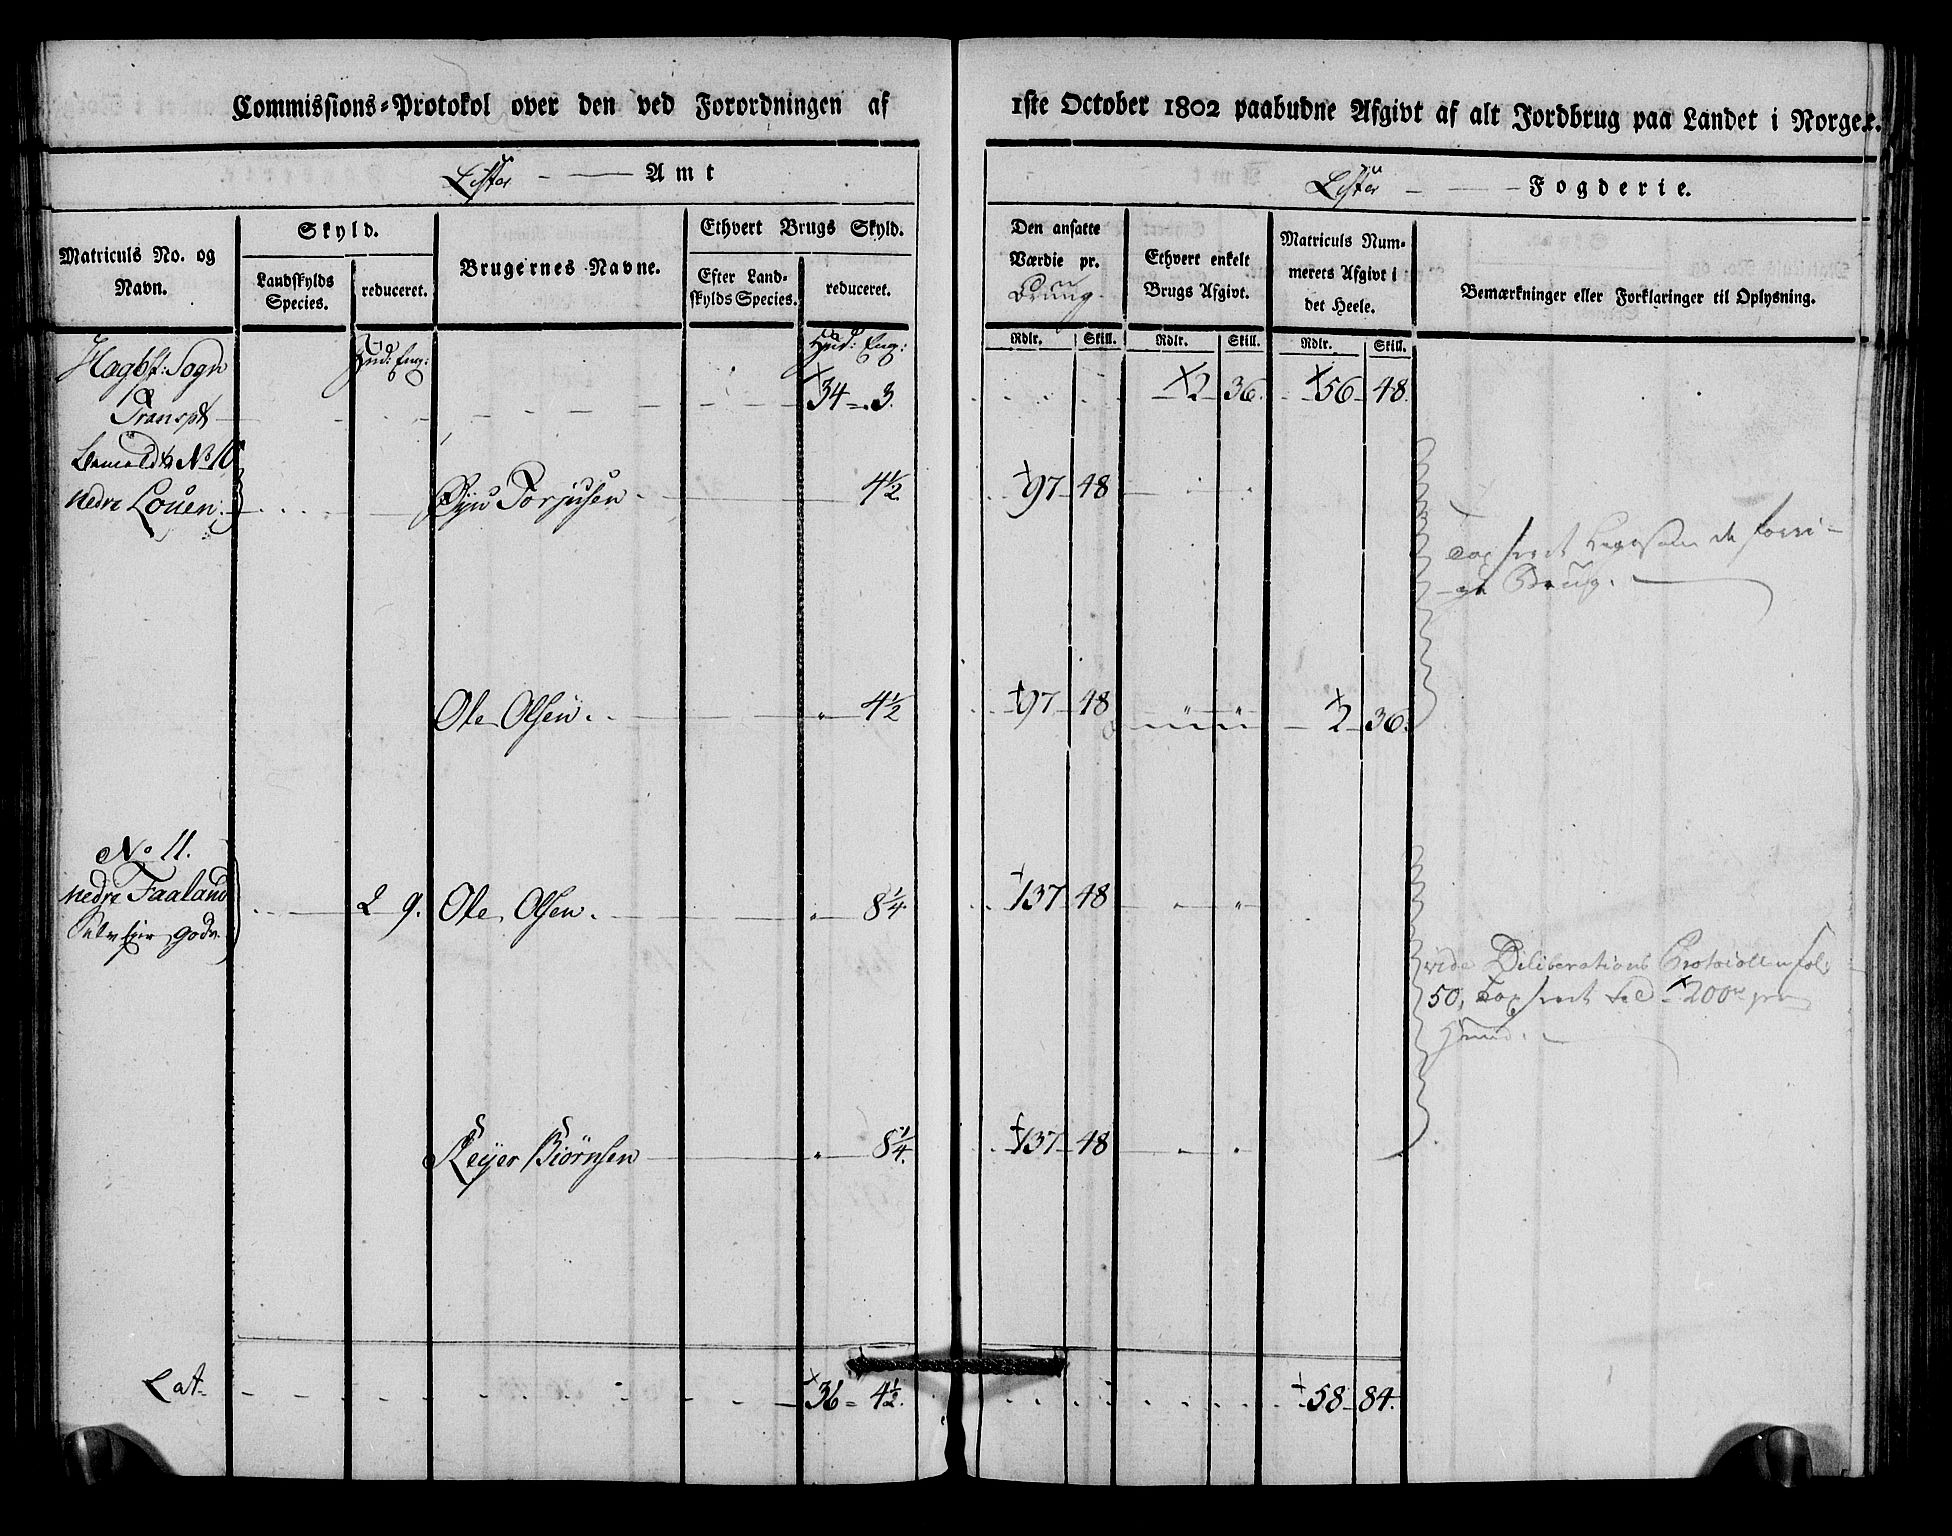 Commissions-Protokol over den ved Forordningen af 1ste October 1802 paabudne Afgivt af alt Jordbrug paa Landet i Norge.
Lister Amt
Lister Fogderie.
Matriculs No. og Navn.
Skyld.
Landskylds Species.
reduceret.
Brugernes Navne.
Ethvert Brugs Skyld.
Efter Landskylds Species.
reduceret.
Den ansatte Værdie pr. Brug.
Ethvert enkelt Brugs Afgivt.
Matriculs Nummerets Afgivt i det Heele.
Bemærkninger eller Forklaringer til Oplysning.
Rdlr. Skill. Rdlr. Skill. Rdlr. Skill.
Hud: Eng: Hud: Eng:
Sogn
Transpt 34 3. 2 36. 56 48.
No 10
nedre Louen: Torjusen 4½ 97 48
Brug.
Ole Olsen. 4½ 97 48 2 36.
No 11.
nedre Faaland 2 9. Ole Olsen. 8¼ 137 48
vide Deliberations Protocollen fol:
50, 200
Reyer Biörnsen 8¼. 137 48
Lat 36 4½. 58 84.